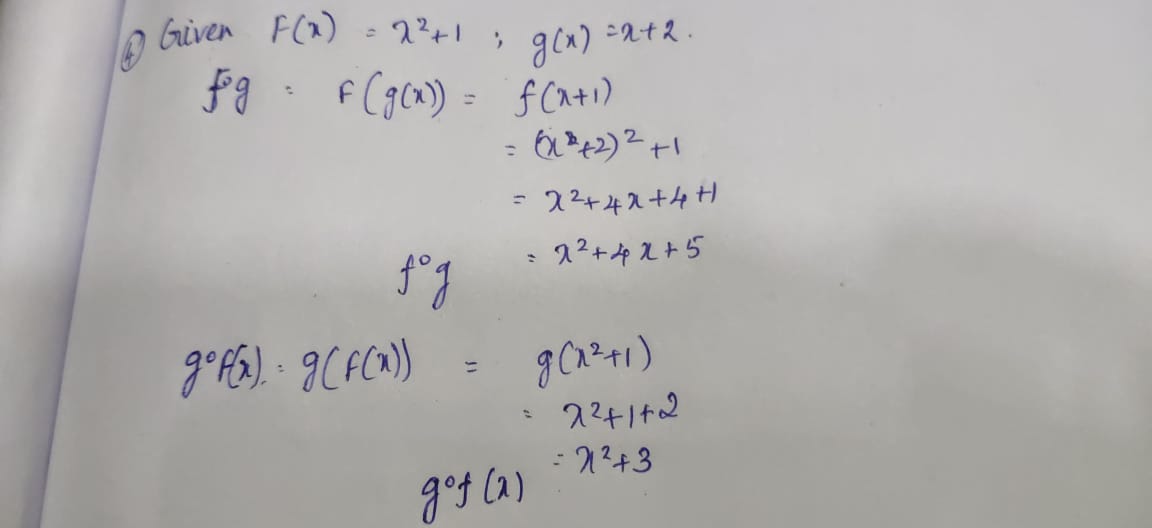 ④ Given F(x) = x²+1 ; g(x) = x+2.
f∘g = F(g(x)) = f(x+1)
= (x+2)² +1
= x²+4x+4+1
f∘g = x²+4x+5
g∘f(x) = g(F(x)) = g(x²+1)
= x²+1+2
g∘f(x) = x²+3